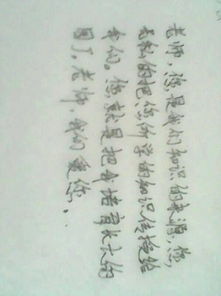 老师,您是我们知识的来源,您,
无私的把您所学的知识传授给
我们。您就是把培育长大的
园丁。老师,我们爱您.